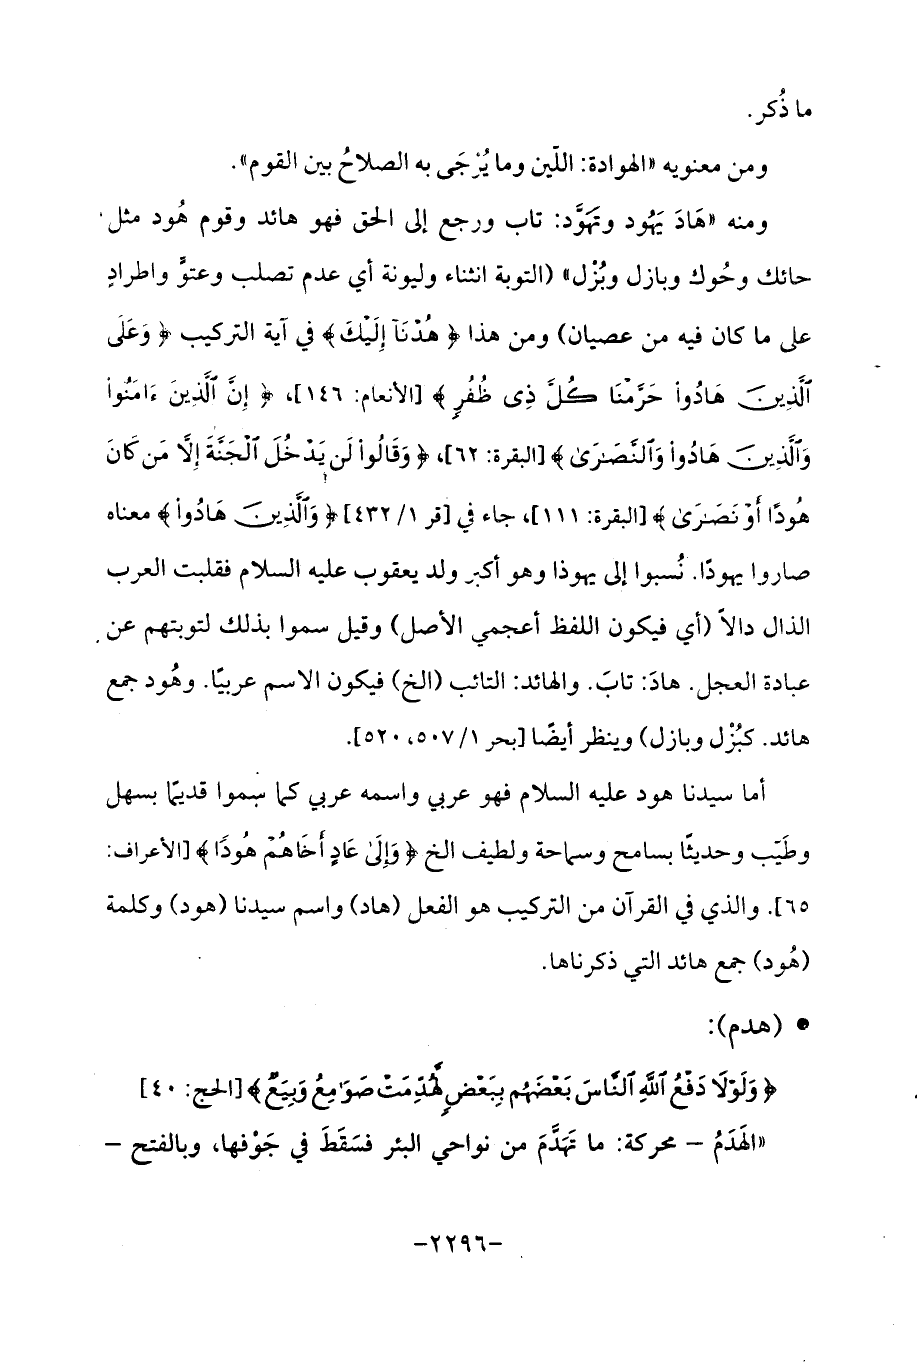 ما ذُكر.
ومن معنويه «الهوادة: اللّين وما يُرْجَى به الصلاحُ بين القوم».
ومنه «هَادَ يَهُود وتَهَوَّد: تاب ورجع إلى الحق فهو هائد وقوم هُود مثل
حائك وحُوك وبازل وبُزْل» (التوبة انثناء وليونة أي عدم تصلب وعتوٍّ واطرادٍ
على ما كان فيه من عصيان) ومن هذا ﴿هُدْنَآ إِلَيْكَ﴾ في آية التركيب ﴿وَعَلَى
ٱلَّذِينَ هَادُوا۟ حَرَّمْنَا كُلَّ ذِى ظُفُرٍ﴾ [الأنعام: ١٤٦]، ﴿إِنَّ ٱلَّذِينَ ءَامَنُوا۟
وَٱلَّذِينَ هَادُوا۟ وَٱلنَّصَـٰرَىٰ﴾ [البقرة: ٦٢]، ﴿وَقَالُوا۟ لَن يَدْخُلَ ٱلْجَنَّةَ إِلَّا مَن كَانَ
هُودًا أَوْ نَصَـٰرَىٰ﴾ [البقرة: ١١١]، جاء في [قر ١/ ٤٣٢] ﴿وَٱلَّذِينَ هَادُوا۟﴾ معناه
صاروا يهودًا. نُسبوا إلى يهوذا وهو أكبر ولد يعقوب عليه السلام فقلبت العرب
الذال دالاً (أي فيكون اللفظ أعجمي الأصل) وقيل سموا بذلك لتوبتهم عن
عبادة العجل. هادَ: تابَ. والهائد: التائب (الخ) فيكون الاسم عربيًّا. وهُود جمع
هائد. كبُزْل وبازل) وينظر أيضًا [بحر ١/ ٥٠٧، ٥٢٠].
أما سيدنا هود عليه السلام فهو عربي واسمه عربي كما سموا قديمًا بسهل
وطَيّب وحديثًا بسامح وسماحة ولطيف الخ ﴿وَإِلَىٰ عَادٍ أَخَاهُمْ هُودًا﴾ [الأعراف:
٦٥]. والذي في القرآن من التركيب هو الفعل (هاد) واسم سيدنا (هود) وكلمة
(هُود) جمع هائد التي ذكرناها.
• (هدم):
﴿وَلَوْلَا دَفْعُ ٱللَّهِ ٱلنَّاسَ بَعْضَهُم بِبَعْضٍ لَّهُدِّمَتْ صَوَٰمِعُ وَبِيَعٌ﴾ [الحج: ٤٠]
«الهَدَمُ – محركة: ما تَهَدَّمَ من نواحي البئر فسَقَطَ في جَوْفها، وبالفتح –
-٢٢٩٦-